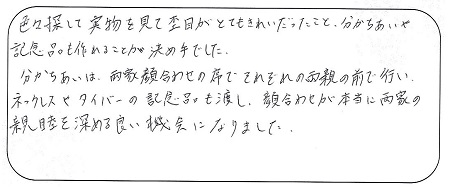 色々探して実物を見て杢目がとてもきれいだったこと、分かちあいや
記念品も作れることが決め手でした。
分かちあいは、両家顔合わせの席でそれぞれの両親の前で行い、
ネックレスやタイバーの記念品も渡し、顔合わせが本当に両家の
親睦を深める良い機会になりました。